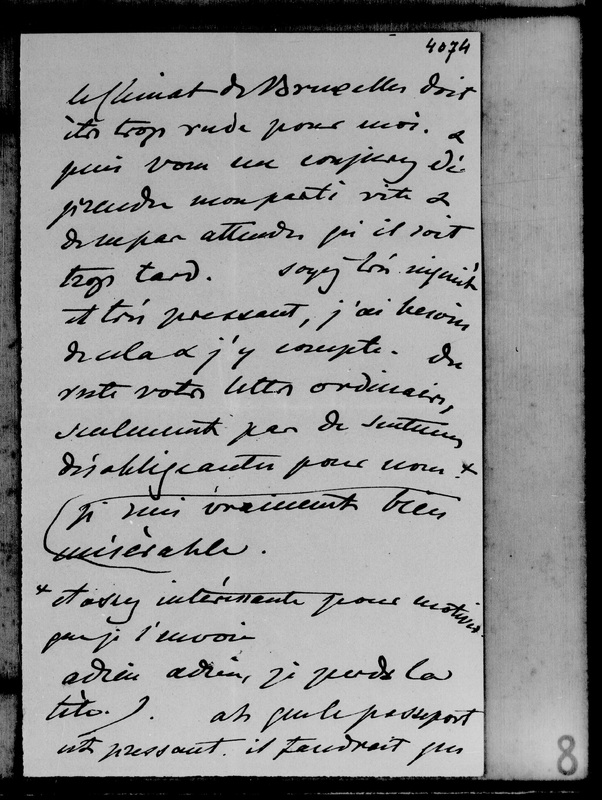 4074
le Climat de Bruxelles doit
être trop rude pour moi. &
puis vous me conjurez de
prendre mon parti vite &
de ne pas attendre qu'il soit
trop tard. soyez très inquiet
et très pressant, j'ai besoin
de cela & j'y compte. du
reste votre lettre ordinaire,
seulement pas de
désobligeantes pour nous +
je suis vraiment bien
misérable.
+ et assez intéressante pour motiver
que je l'envoie
adieu adieu, je perds la
tête.). ah que le passeport
est pressant. il faudrait que
8